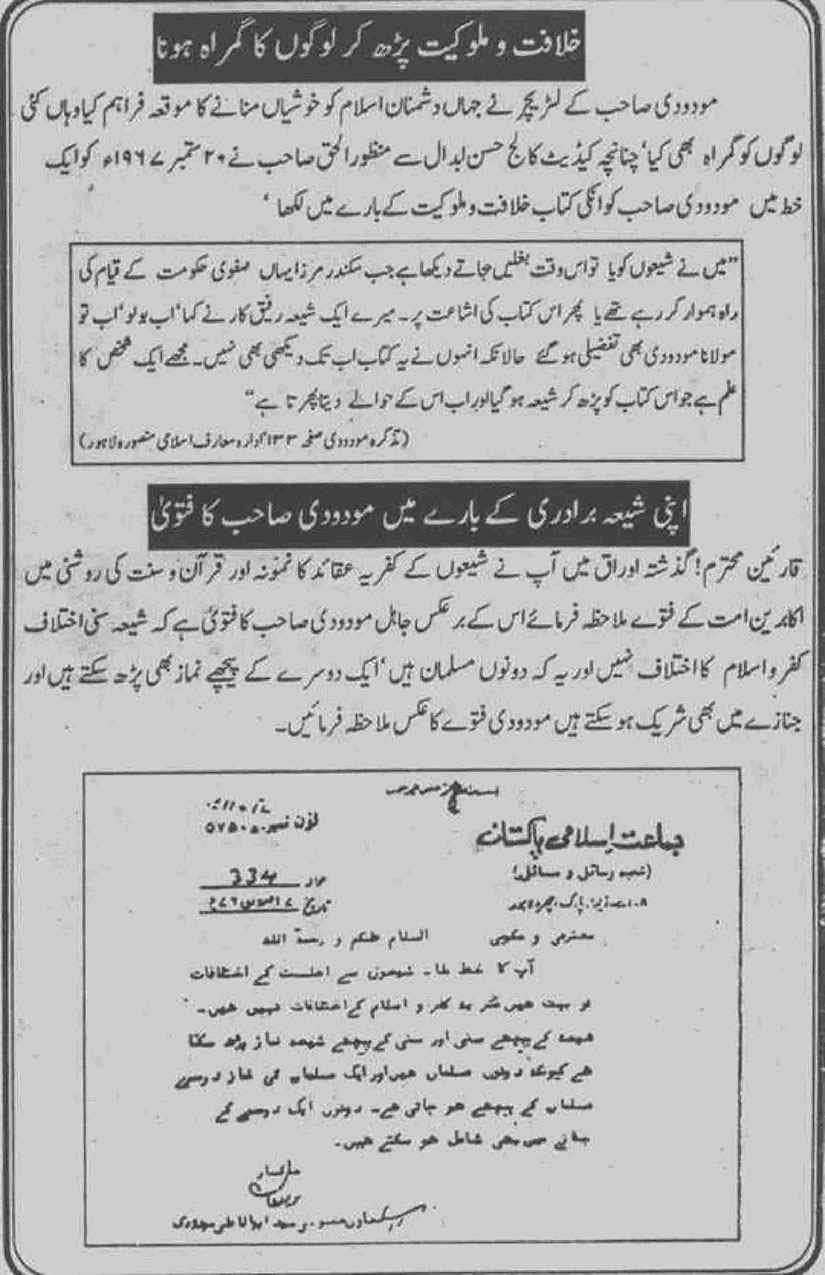 خلافت و ملوکیت پڑھ کر لوگوں کا گمراہ ہونا
مودودی صاحب کے لٹریچر نے جہاں دشمنان اسلام کو خوشیاں منانے کا موقعہ فراہم کیا وہاں کئی
لوگوں کو گمراہ بھی کیا‘ چنانچہ کیڈیٹ کالج حسن ابدال سے منظور الحق صاحب نے ۲۰ ستمبر ۱۹۶۷ء کو ایک
خط میں مودودی صاحب کو انکی کتاب خلافت و ملوکیت کے بارے میں لکھا ‘
”میں نے شیعوں کو یا تو اس وقت بغلیں بجاتے دیکھا ہے جب سکندر مرزا یہاں صفوی حکومت کے قیام کی
راہ ہموار کر رہے تھے یا پھر اس کتاب کی اشاعت پر۔ میرے ایک شیعہ رفیق کار نے کہا‘ اب بولو‘ اب تو
مولانا مودودی بھی تفضیلی ہو گئے حالانکہ انہوں نے یہ کتاب اب تک دیکھی بھی نہیں۔ مجھے ایک شخص کا
علم ہے جو اس کتاب کو پڑھ کر شیعہ ہو گیا اور اب اس کے حوالے دیتا پھرتا ہے“
(تذکرہ مودودی صفحہ ۱۳۳ ادارہ معارف اسلامی منصورہ لاہور)
اپنی شیعہ برادری کے بارے میں مودودی صاحب کا فتویٰ
قارئین محترم! گذشتہ اوراق میں آپ نے شیعوں کے کفریہ عقائد کا نمونہ اور قرآن و سنت کی روشنی میں
اکابرین امت کے فتوے ملاحظہ فرمائے اس کے برعکس جاہل مودودی صاحب کا فتویٰ ہے کہ شیعہ سنی اختلاف
کفر و اسلام کا اختلاف نہیں اور یہ کہ دونوں مسلمان ہیں‘ ایک دوسرے کے پیچھے نماز بھی پڑھ سکتے ہیں اور
جنازے میں بھی شریک ہو سکتے ہیں مودودی فتوے کا عکس ملاحظہ فرمائیں۔
فون نمبر ۵۷۵۰۸
جماعت اسلامی پاکستان
(شعبہ رسائل و مسائل)
حوالہ 334
ذیلدار پارک اچھرہ لاہور
تاریخ
محترمی و مکرمی السلام علیکم و رحمۃ اللہ
آپ کا خط ملا۔ شیعوں سے اہلسنت کے اختلافات
تو بہت ہیں مگر یہ کفر و اسلام کے اختلافات نہیں ہیں۔
شیعہ کے پیچھے سنی اور سنی کے پیچھے شیعہ نماز پڑھ سکتا
ہے کیونکہ دونوں مسلمان ہیں اور ایک مسلمان کی نماز دوسرے
مسلمان کے پیچھے ہو جاتی ہے۔ دونوں ایک دوسرے کے
جنازے میں بھی شامل ہو سکتے ہیں۔
خاکسار
معاون خصوصی سید ابوالاعلی مودودی